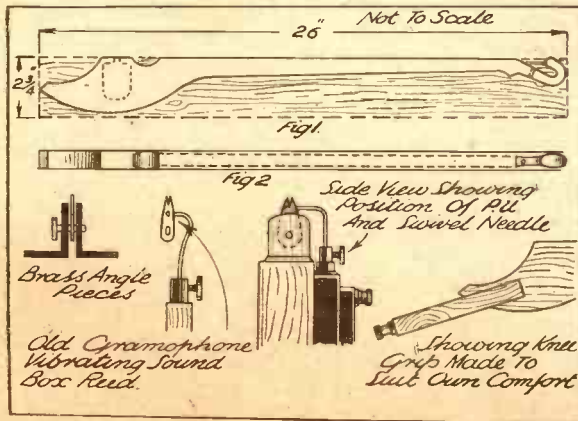 26"
Not To Scale
2 3/4"
Fig1.
Fig 2
Side View Showing
Position Of P.U
And Swivel Needle
Brass Angle
Pieces
Old Gramophone
Vibrating Sound
Box Reed.
Showing Knee
Grip Made To
Suit Own Comfort